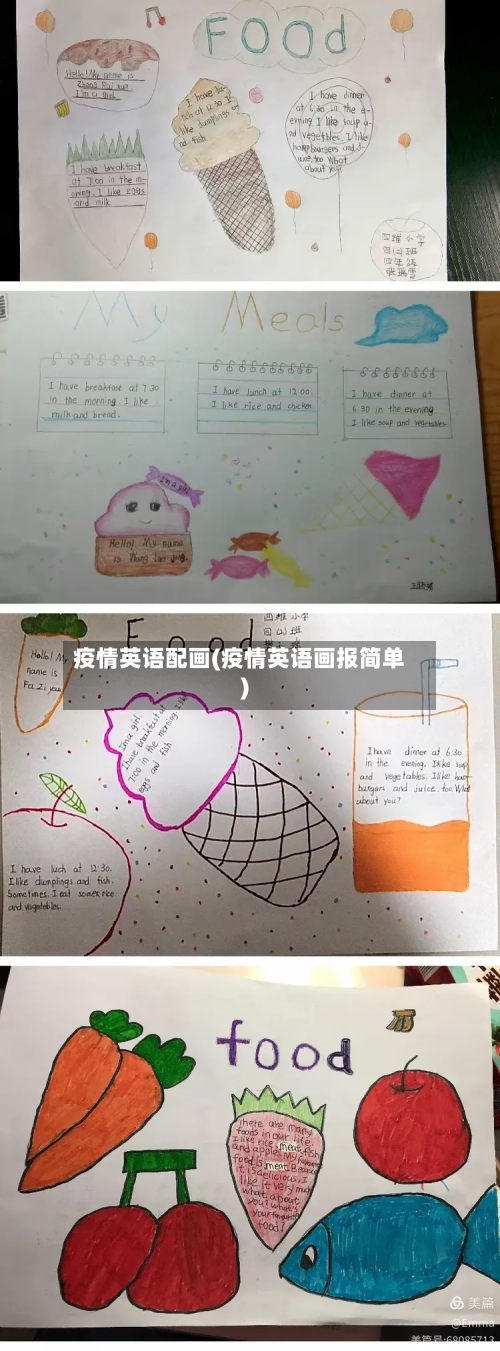 FOOD
Hello! My name is
I'm a girl.
I have lunch at 12:30. I
like dumplings and
fish
I have dinner
at 6:30 in the e-
evening. I like soup a-
nd vegetbles. I like
hamburgers and
too. What
about you?
I have breakfast
at 7:00 in the mo-
rning. I like eggs
and milk.
四维小学
四(2)班
My Meals
I have breakfast at 7:30
in the morning. I like
milk and bread.
I have lunch at 12:00.
I like rice and chicken
I have dinner at
6:30 in the evening
I like soup and vegetables
I'm a girl
Hello! My name
is Wang
Food
四维小学
四(2)班
疫情英语配画(疫情英语画报简单
)
Hello! My
name is
I'm a girl.
I have breakfast at
7:00 in the morning. I like
eggs and fish
I have dinner at 6:30
in the evening. I like soup
and vegetables. I like ham-
burgers and juice, too. What
about you?
I have luch at 12:30.
I like dumplings and fish.
Sometimes. I eat some rice
and vegetables.
food
There are many
foods in our life.
I like rice, meat, fish
and apples. My favourite
food is meat. Because
it is delicious. I
like it very much
what about
you? what's
your favourite
food?
美篇
@Emma
美篇号:68085713